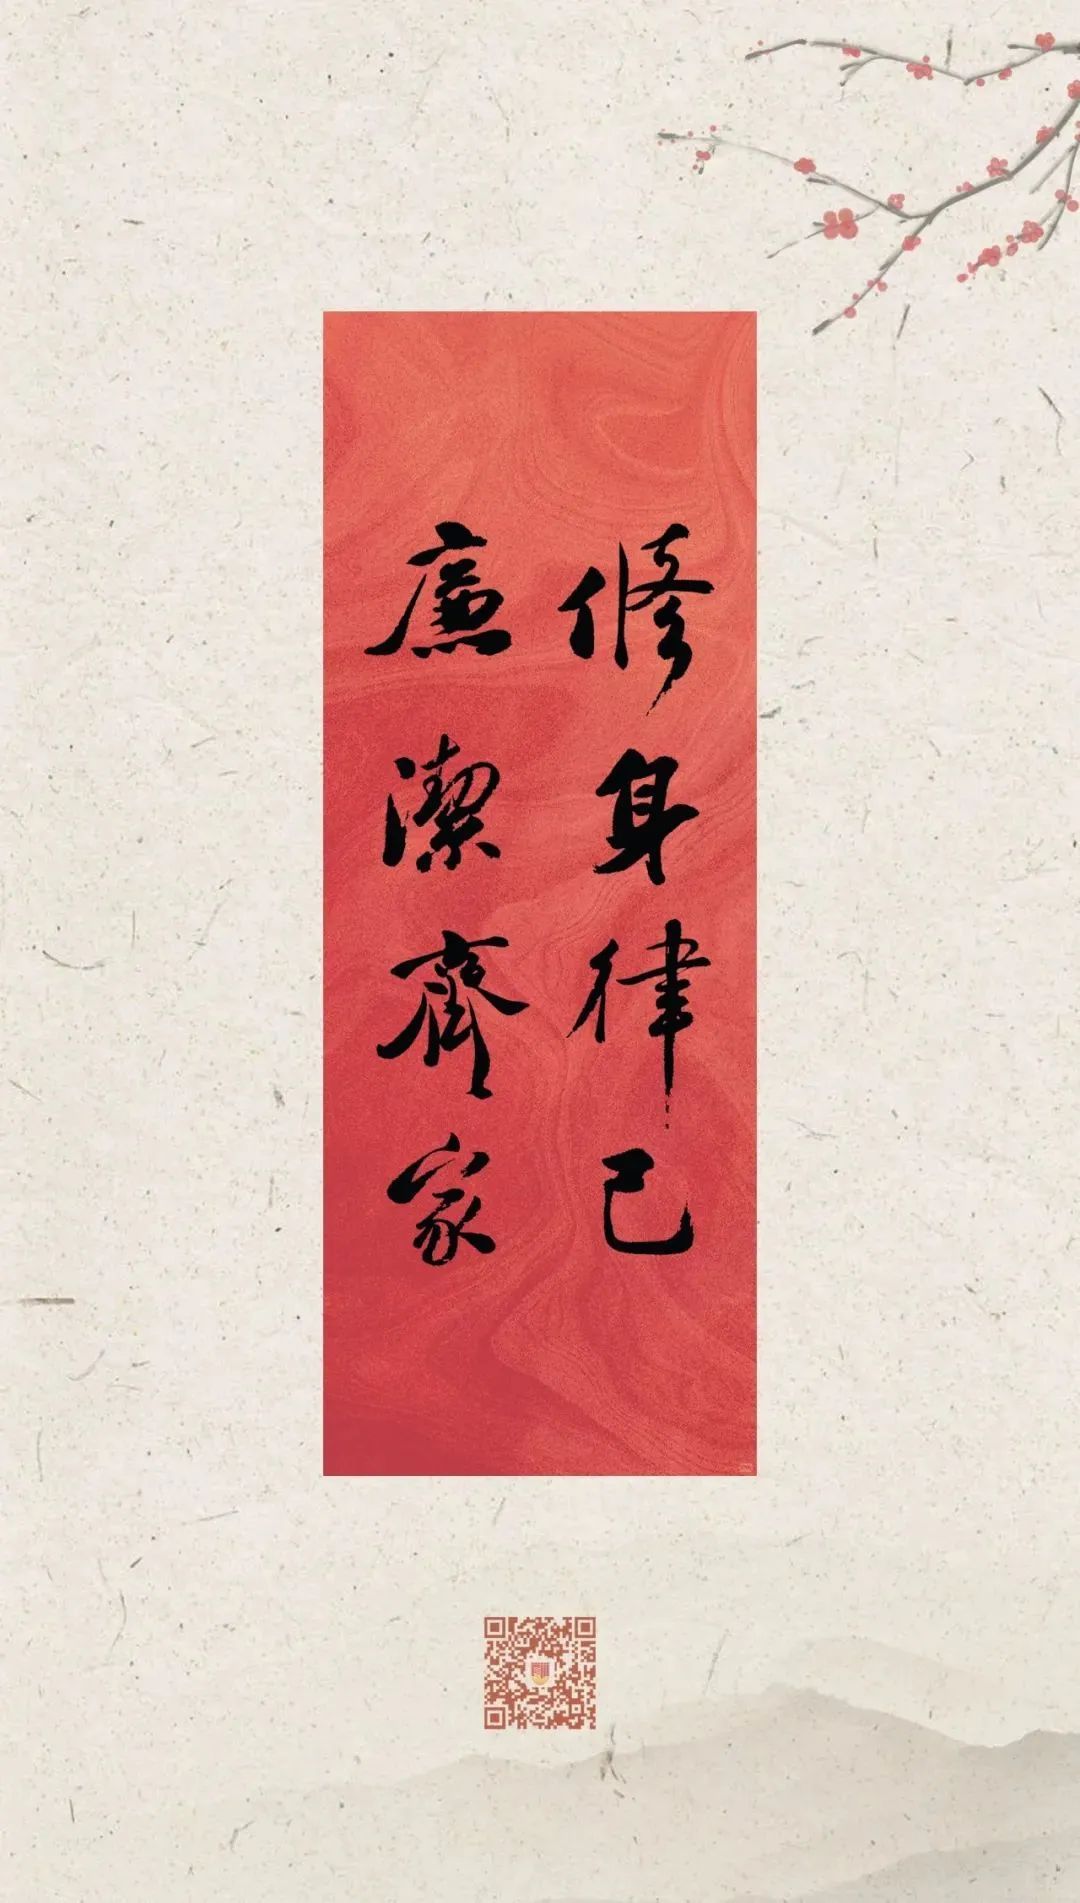 修身律己
廉潔齊家